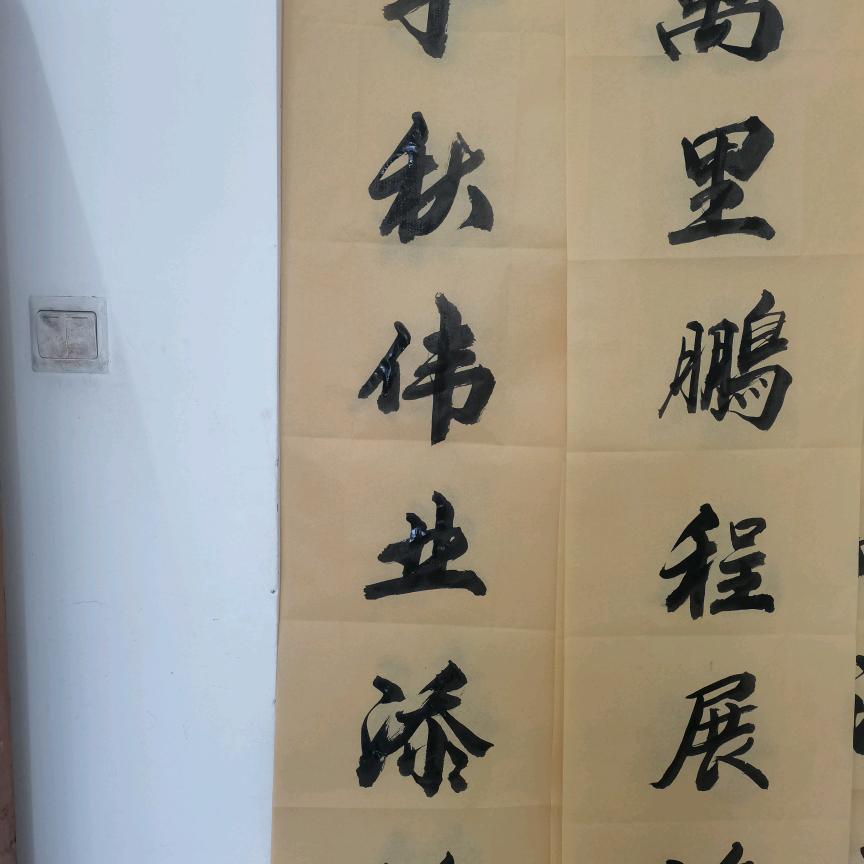 萬里鵬程展
秋伟业添